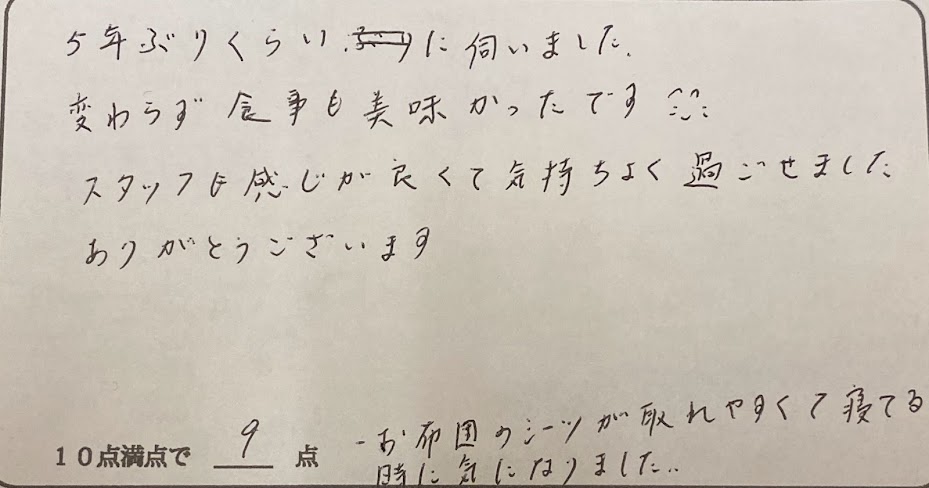 5年ぶりくらいに伺いました.
変わらず食事も美味かったです
スタッフも感じが良くて気持ちよく過ごせました
ありがとうございます
10点満点で 9 点
-お布団のシーツが取れやすくて寝てる
時に気になりました..